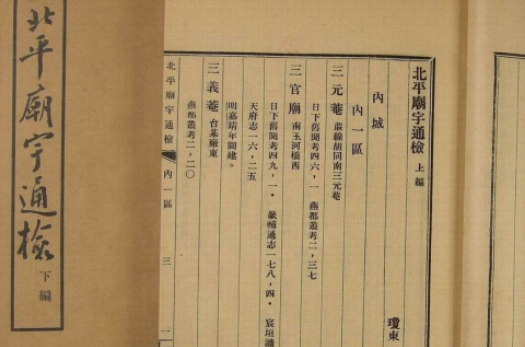 北平廟宇通檢 下編
北平廟宇通檢 上編
瓊東
內城
內一區
三元菴 蔴線胡同南三元菴
日下舊聞考四六，一 燕都叢考二，三七
三官廟 南玉河橋西
日下舊聞考四九，一 畿輔通志一七八，四 宸垣識
天府志一六，二五
明嘉靖年間建。
三義菴 台基廠東
燕都叢考二，二〇
北平廟宇通檢 內一區 三